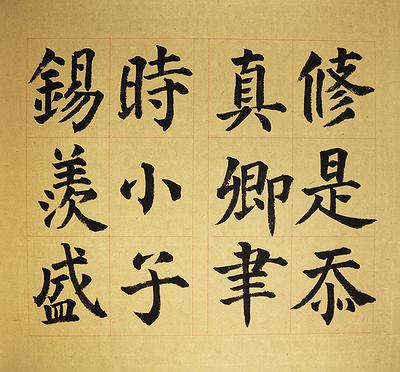 錫羨盛
時小子
真卿聿
修是忝